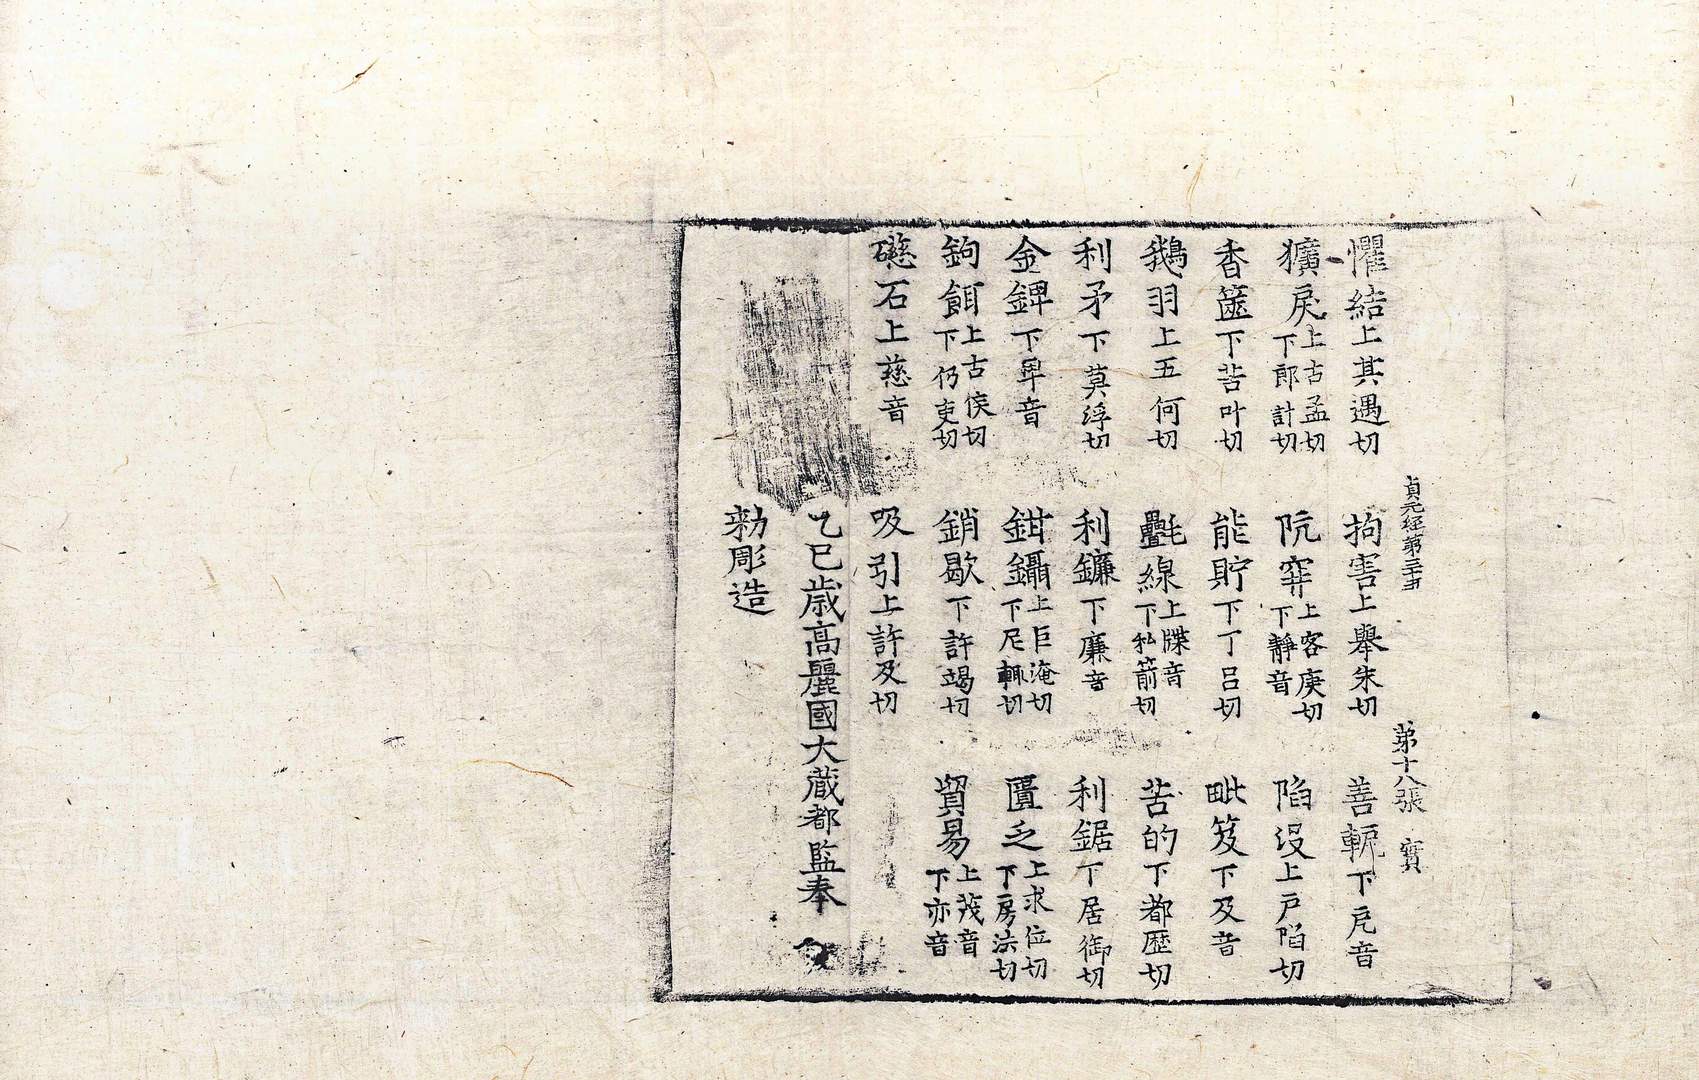 貞元經第三十五　第十八張　寶
懼結上其遇切　拘害上舉朱切　善軛下戹音
獷戾上古孟切下郎計切　阬穽上客庚切下靜音　陷沒上戶陷切
香篋下苦叶切　能貯下丁呂切　毗笈下及音
鵝羽上五何切　㲲線上牒音下私箭切　苦的下都歷切
利矛下莫浮切　利鐮下廉音　利鋸下居御切
金錍下卑音　鉗鑷上巨淹切下尼輒切　匱乏上求位切下房法切
鉤餌上古侯切下仍吏切　銷歇下許竭切　貿易上茂音下亦音
礠石上慈音　吸引上許及切
乙巳歲高麗國大藏都監奉
勑彫造